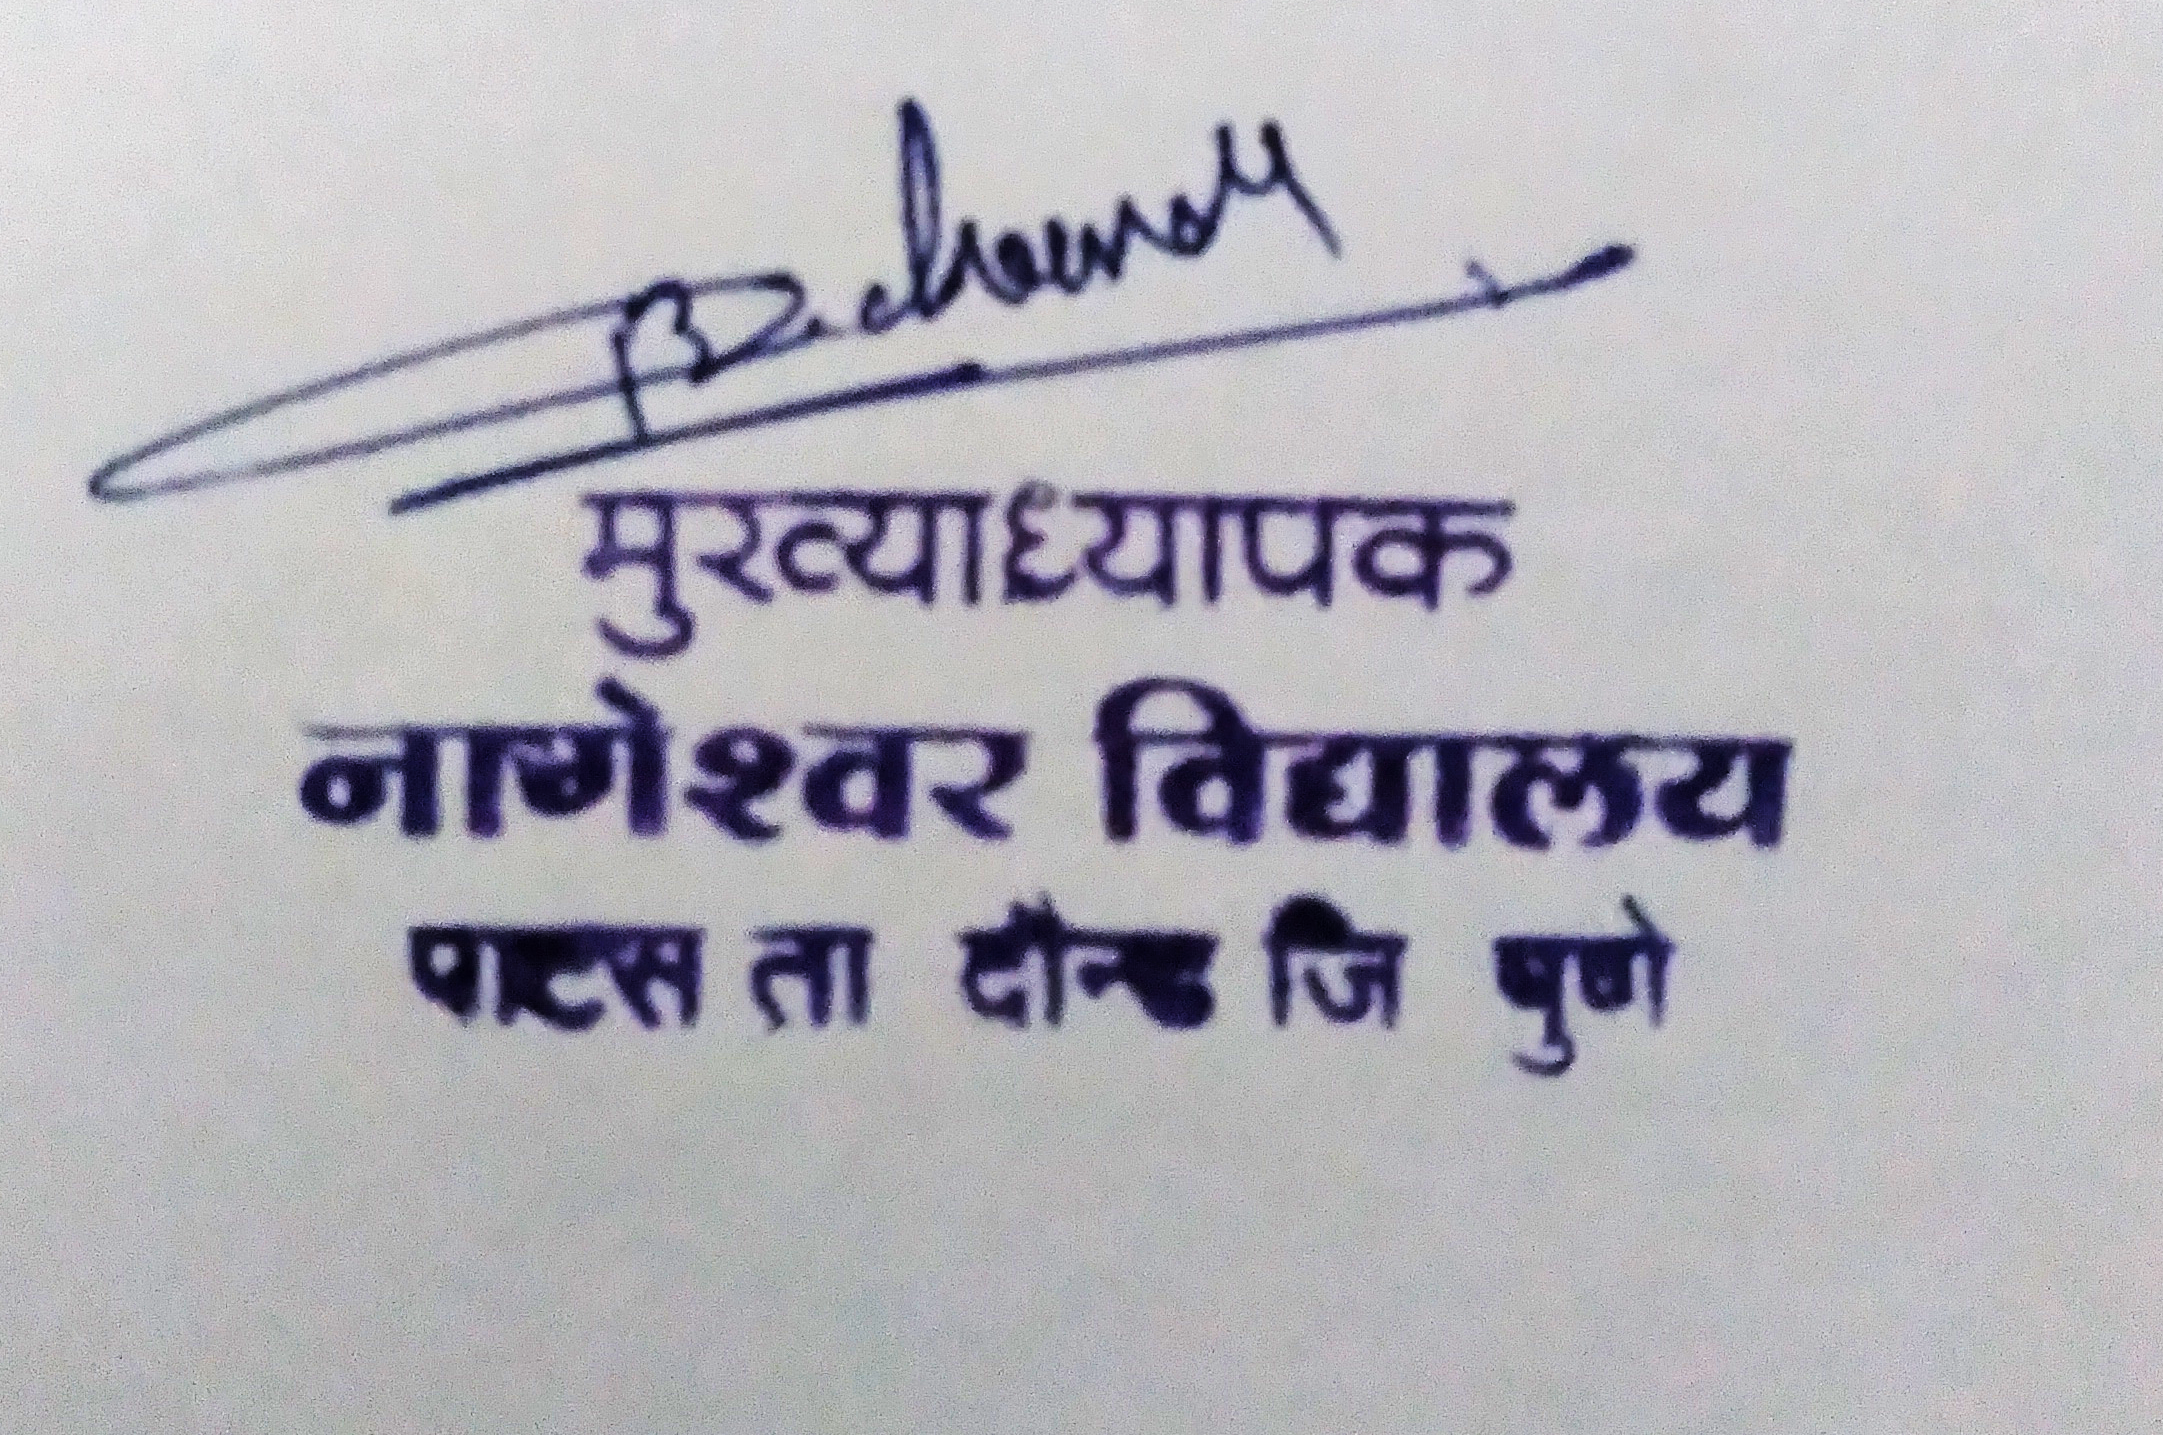 मुख्याध्यापक
नागेश्वर विद्यालय
पाटस ता दौन्ड जि पुणे